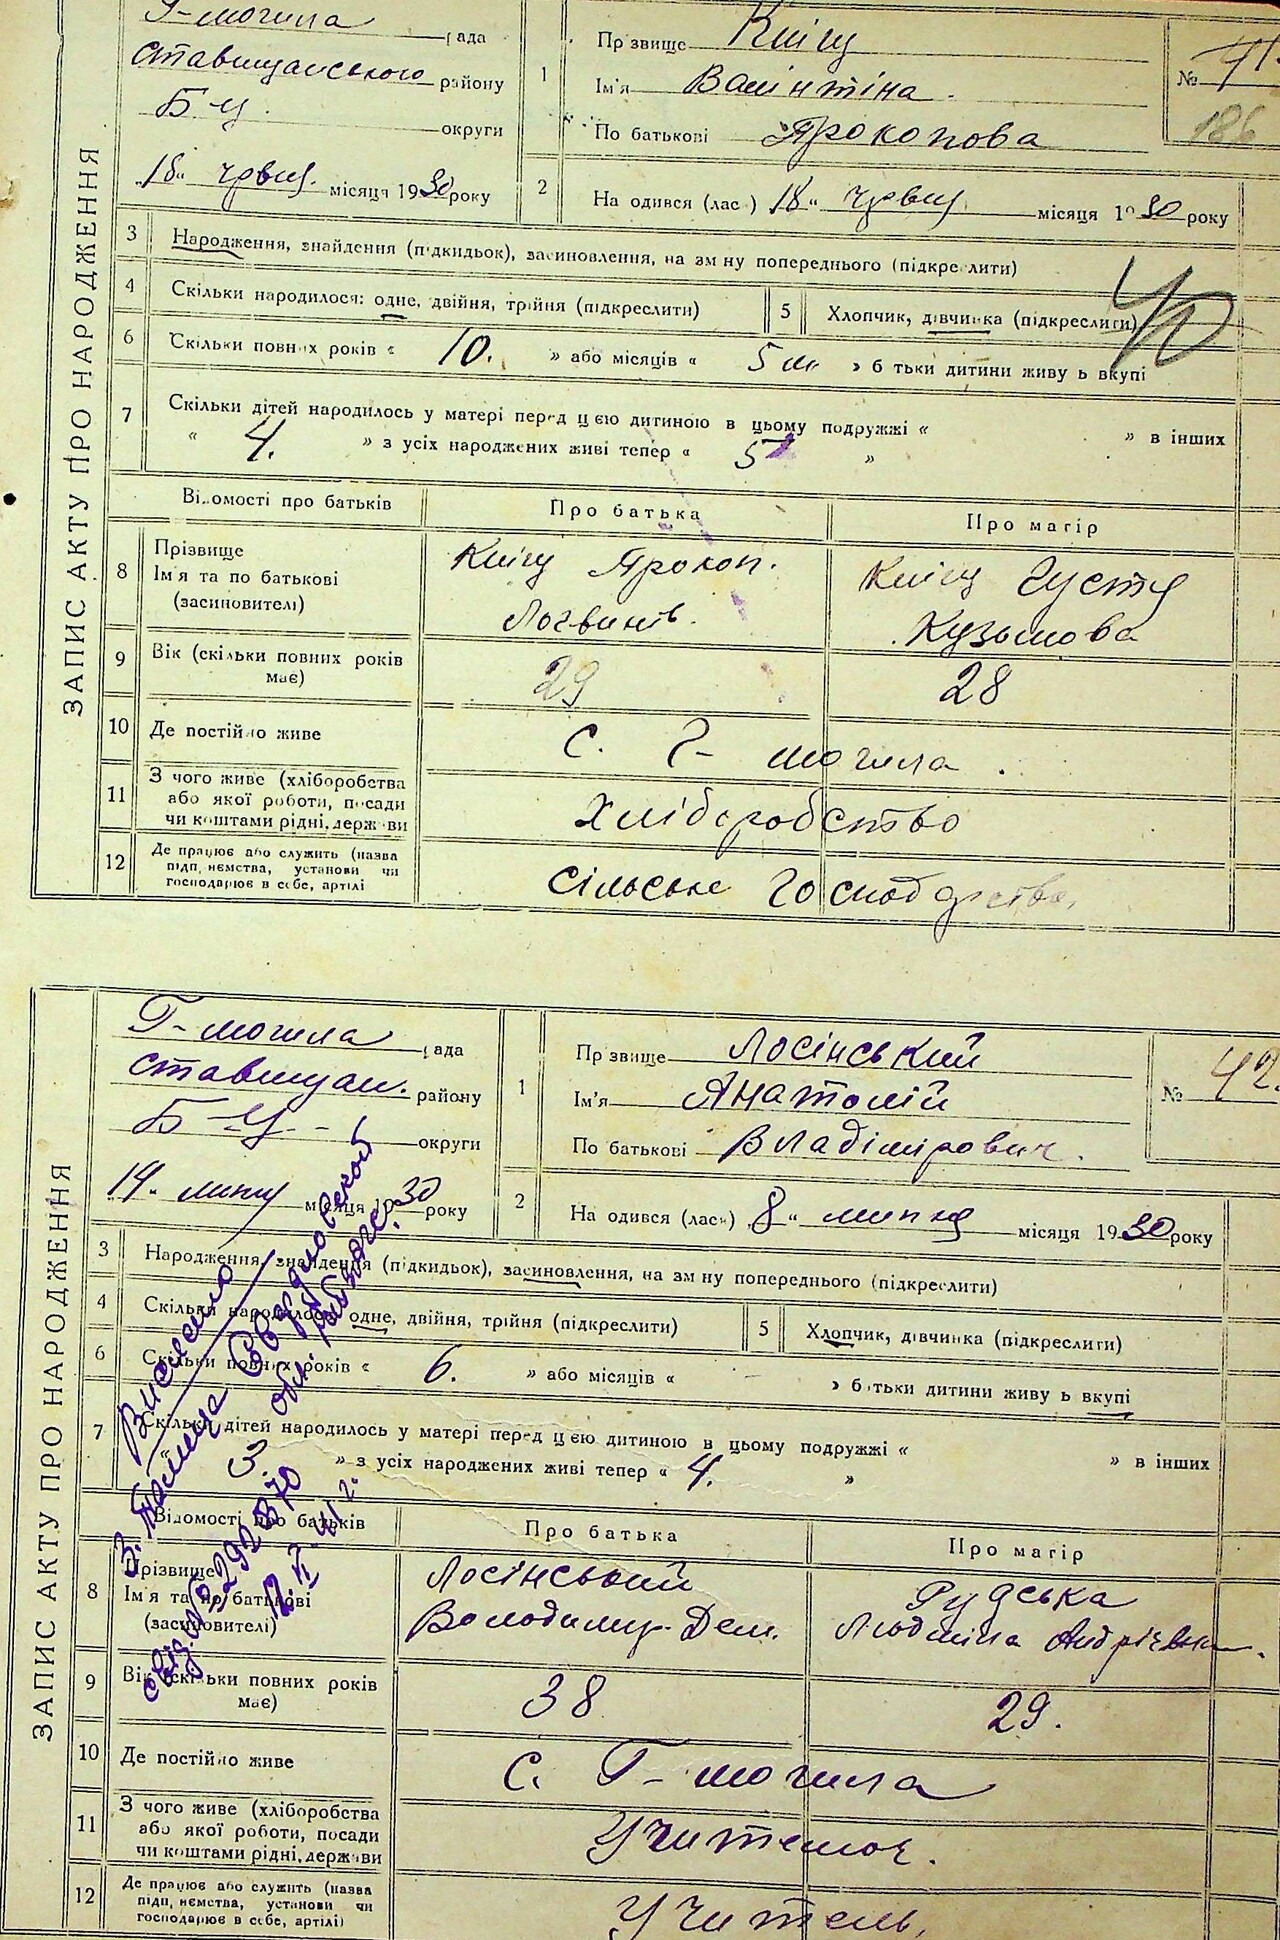 ЗАПИС АКТУ ПРО НАРОДЖЕННЯ
Г-могила рада
Ставищанського району
Б-Ц. округи
"18" червц. місяця 1930 року
1
Прізвище Кніщ
Ім'я Валінтіна.
По батькові Прокопова
№ 41.
186
2
На одився (лас ) 18" червц місяця 1930 року
3 Народження, знайдення (підкидьок), засиновлення, на зм ну попереднього (підкреслити)
4 Скільки народилося: одне, двійня, трійня (підкреслити) 5 Хлопчик, дівчинка (підкреслити)
6 Скільки повних років « 10. » або місяців « 5 м. » б тьки дитини живу ь вкупі
7 Скільки дітей народилось у матері перед цією дитиною в цьому подружжі «
« 4. » з усіх народжених живі тепер « 5 » » в інших
Відомості про батьків Про батька Про матір
8 Прізвище
Ім'я та по батькові
(засиновителі)
Кніщ Прокоп.
Логвинів.
Кніщ Густя
Кузьмова
9 Вік (скільки повних років має) 29 28
10 Де постійно живе с. Г- могила.
11 З чого живе (хліборобства
або якої роботи, посади
чи коштами рідні, держави
Хліборобство
12 Де працює або служить (назва
підп, иємства, установи чи
господарює в себе, артілі
сільське господарство,
ЗАПИС АКТУ ПРО НАРОДЖЕННЯ
Г-могила рада
Ставищан. району
Б-Ц- округи
14. липц місяця 1930 року
1
Прізвище Лосінський
Ім'я Анатолій
По батькові Владімірович.
№ 42.
2
На одився (лась) 8" липця місяця 1930 року
3 Народження, знайдення (підкидьок), засиновлення, на зм ну попереднього (підкреслити)
4 Скільки народилось одне, двійня, трійня (підкреслити) 5 Хлопчик, дівчинка (підкреслити)
6 Скільки повних років « 6. » або місяців « - » батьки дитини живу ь вкупі
7 Скільки дітей народилось у матері перед цією дитиною в цьому подружжі «
3. » з усіх народжених живі тепер « 4. » » в інших
Відомості про батьків Про батька Про матір
8 Прізвище
Ім'я та по батькові
(засиновителі)
Лосінський
Володимир Дем.
Рудська
Людміла Андріевна.
9 Вік (скільки повних років має) 38 29.
10 Де постійно живе с. Г- могила
11 З чого живе (хліборобства
або якої роботи, посади
чи коштами рідні, держави
Учителює.
12 Де працює або служить (назва
підп, иємства, установи чи
господарює в себе, артілі)
Учитель,
Вислано
Свердловской
обл.
свід. № 292370
12.VI-41 г.